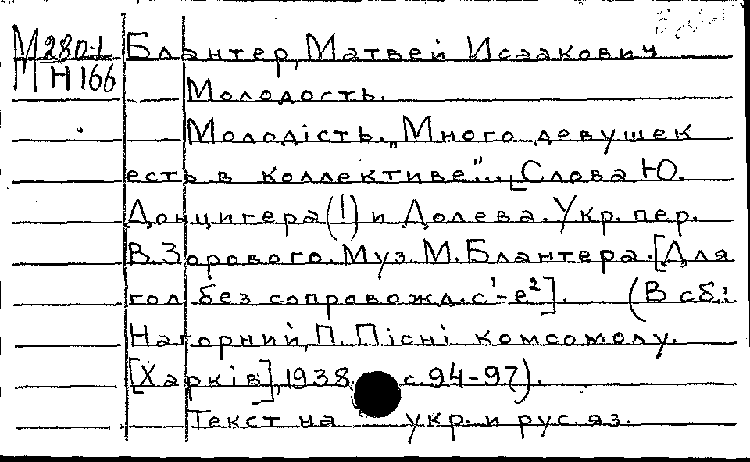 М280-1 Блантер, Матвей Исаакович
Н166
Молодость.
Молодість. „Много девушек
есть в коллективе"... [Слова Ю.
Данцигера (!) и Долева. Укр. пер.
В. Зорового. Муз. М. Блантера. [Для
гол. без сопровожд. c¹-e²]. (В сб.:
Нагорний, П. Пісні комсомолу.
[Харків], 1938, с. 94-97).
Текст на укр. и рус. яз.